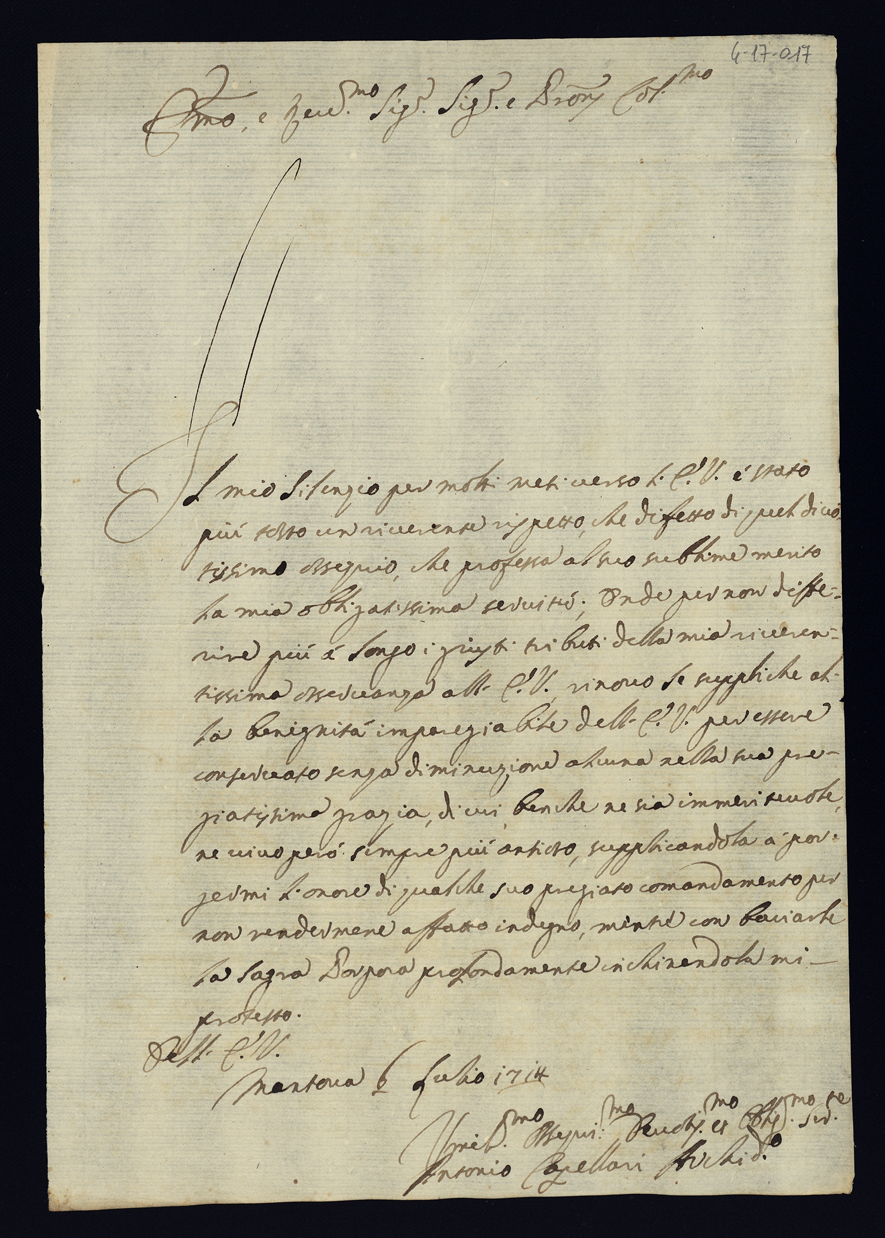 4-17-017
Em̃o, e Reu.mo Sig.r Sig.r e Prõn Col.mo
Il mio silenzio per molti mesi uerso L' E.V. é stato
piú tosto un riuerente rispetto, che difetto di quel diuo
tissimo ossequio, che professa al suo sublime merito
la mia obligatissima seruitú; Onde per non diffe=
rire piú á longo i giusti tributi della mia riueren=
tissima osseruanza all' E.V. rinouo le suppliche al-
la benignitá imparegiabile dell' E.V. per essere
conseruato senza diminuzione alcuna nella sua pre-
giatissima grazia, di cui, benche ne sia immeriteuole,
ne uiuo peró sempre piú ansioso, supplicandola á por=
germi l' onore di qualche suo pregiato comandamento per
non rendermene affatto indegno, mentre con baciarle
la Sagra Porpora profondamente inchinandola mi
protesto.
Dell' E.V.
Mantoua 6 Luglio 1714
Umil.mo Ossequi.mo Deuotis.mo et Oblig.mo Ser.re
Antonio Capellari Archid.o